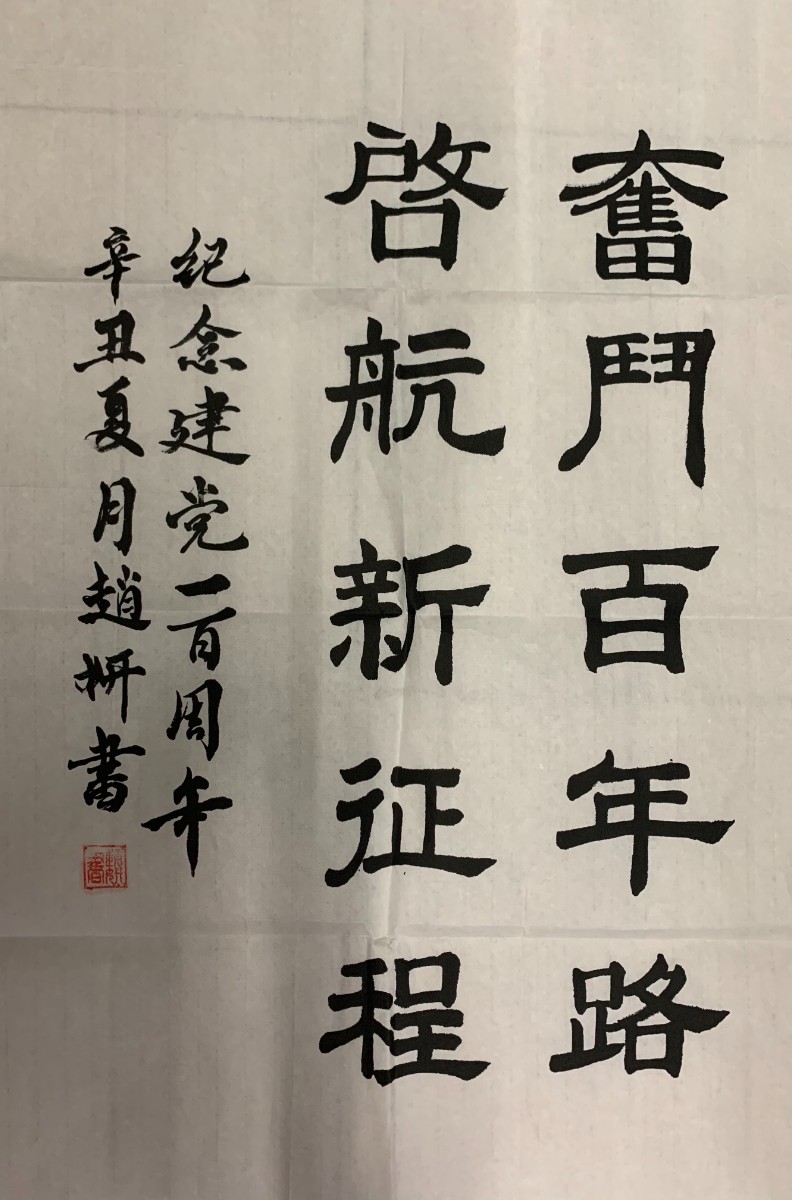 奮鬥百年路
啓航新征程
纪念建党一百周年
辛丑夏月趙妍書